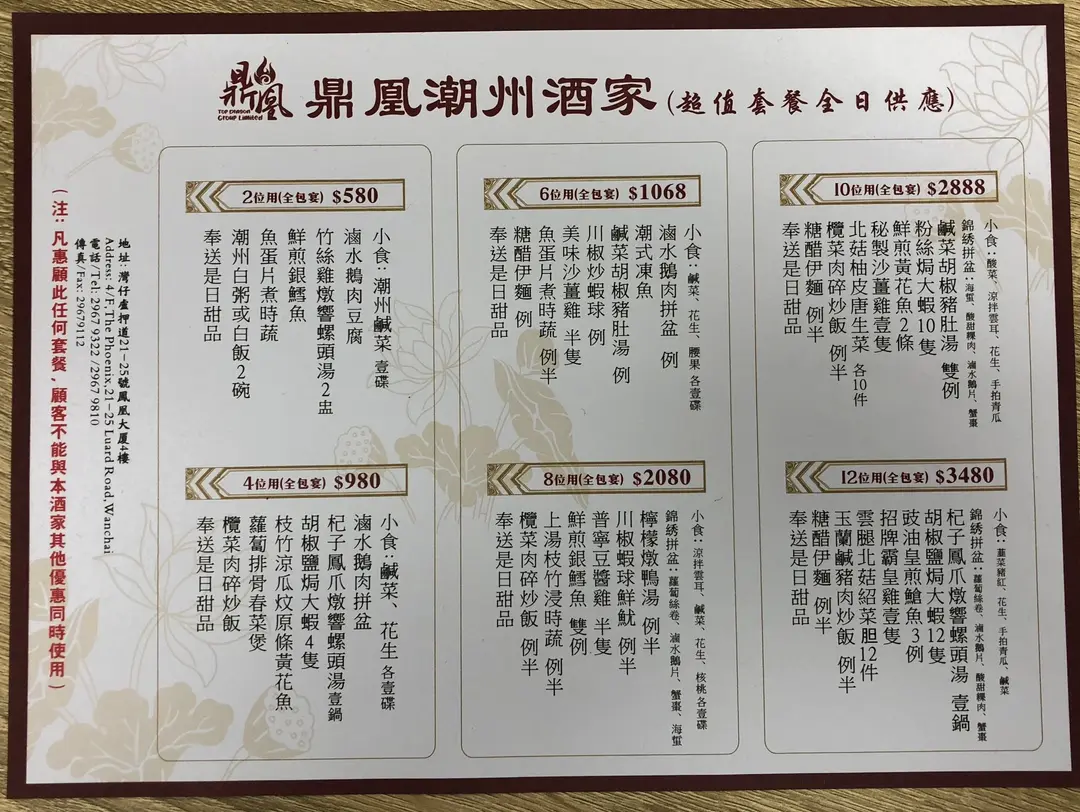 鼎凰
TOP DRAGON
GROUP LIMITED
鼎凰潮州酒家(超值套餐全日供應)
2位用(全包宴) $580
小食:潮州鹹菜 壹碟
滷水鵝肉豆腐
竹絲雞燉響螺頭湯2盅
鮮煎銀鱈魚
魚蛋片煮時蔬
潮州白粥或白飯2碗
奉送是日甜品
6位用(全包宴) $1068
小食:鹹菜、花生、腰果 各壹碟
滷水鵝肉拼盆 例
潮式凍魚
鹹菜胡椒豬肚湯 例
川椒炒蝦球 例
美味沙薑雞 半隻
魚蛋片煮時蔬 例半
糖醋伊麵 例
奉送是日甜品
10位用(全包宴) $2888
小食:酸菜、涼拌雲耳、花生、手拍青瓜
錦綉拼盆:海蜇、酸甜粿肉、滷水鵝片、蟹棗
鹹菜胡椒豬肚湯 雙例
粉絲焗大蝦10隻
鮮煎黃花魚2條
秘製沙薑雞壹隻
北菇柚皮唐生菜 各10件
欖菜肉碎炒飯 例半
糖醋伊麵 例半
奉送是日甜品
4位用(全包宴) $980
小食:鹹菜、花生 各壹碟
滷水鵝肉拼盆
杞子鳳爪燉響螺頭湯壹鍋
胡椒鹽焗大蝦4隻
枝竹涼瓜炆原條黃花魚
蘿蔔排骨春菜煲
欖菜肉碎炒飯
奉送是日甜品
8位用(全包宴) $2080
小食:涼拌雲耳、鹹菜、花生、核桃各壹碟
錦綉拼盆:蘿蔔絲卷、滷水鵝片、蟹棗、海蜇
檸檬燉鴨湯 例半
川椒蝦球鮮魷 例半
普寧豆醬雞 半隻
鮮煎銀鱈魚 雙例
上湯枝竹浸時蔬 例半
欖菜肉碎炒飯 例半
奉送是日甜品
12位用(全包宴) $3480
小食:韮菜豬紅、花生、手拍青瓜、鹹菜
錦綉拼盆:蘿蔔絲卷、滷水鵝片、酸甜粿肉、蟹棗
杞子鳳爪燉響螺頭湯 壹鍋
胡椒鹽焗大蝦12隻
豉油皇煎鯧魚3例
招牌霸皇雞壹隻
雲腿北菇紹菜胆12件
玉蘭鹹豬肉炒飯 例半
糖醋伊麵 例半
奉送是日甜品
地址:灣仔盧押道21-25號鳳凰大厦4樓
Address: 4/F,The Phoenix,21-25 Luard Road,Wanchai
電話/Tel: 2967 9322 /2967 9810
傳真/Fax: 29679112
(注:凡惠顧此任何套餐、顧客不能與本酒家其他優惠同時使用)